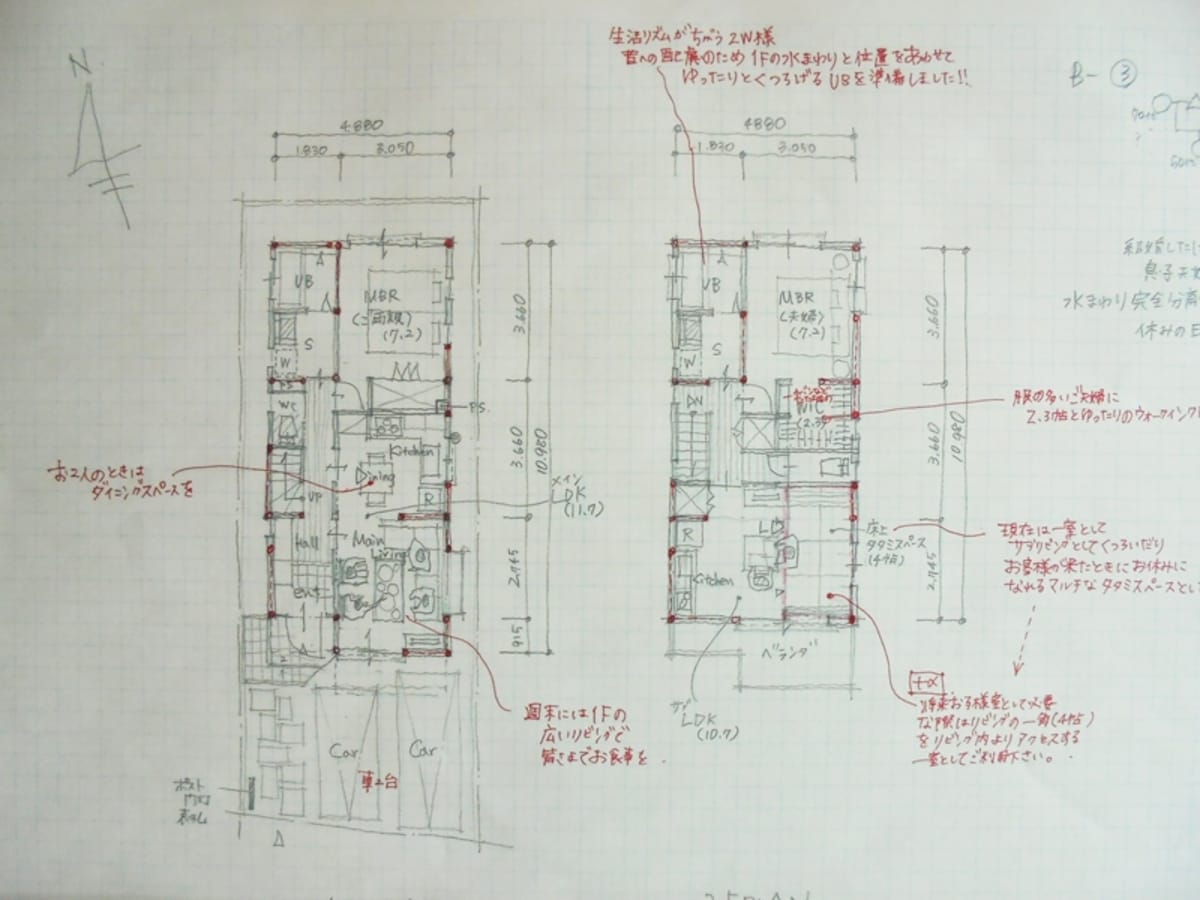 生活リズムがちがう2W様
音への配慮のため1Fの水まわりと位置をあわせて
ゆったりとくつろげるUBを準備しました!!
B-③
N
4.880
1.830
3.050
4880
1.830
3.050
UB
MBR
(ご両親)
(7.2)
S
W
PS
WC
P.S.
Kitchen
Dining
R
UP
Hall
Main
Living
ent
3.660
3.660
10.980
2.745
915
メイン
LDK
(11.7)
お2人のときは
ダイニングスペースを
週末には1Fの
広いリビングで
皆さまでお食事を
Car
Car
車2台
ポスト
門灯
表札
UB
MBR
(夫婦)
(7.2)
S
W
DN
WIC
(2.3)
R
LD
Kitchen
床上
タタミスペース
(4帖)
ベランダ
サブ
LDK
(10.7)
3.660
3.660
10.980
2.745
結婚したけ
息子夫婦
水まわり完全分離
休みの日
服の多いご夫婦に
2.3帖とゆったりのウォークイン
現在は一室として
サブリビングとしてくつろいだり
お客様の来たときにお休みに
なれるマルチなタタミスペースとし
+α
将来お子様室として必要
な際はリビングの一角(4帖)
をリビング内よりアクセスする
一室としてご利用下さい。